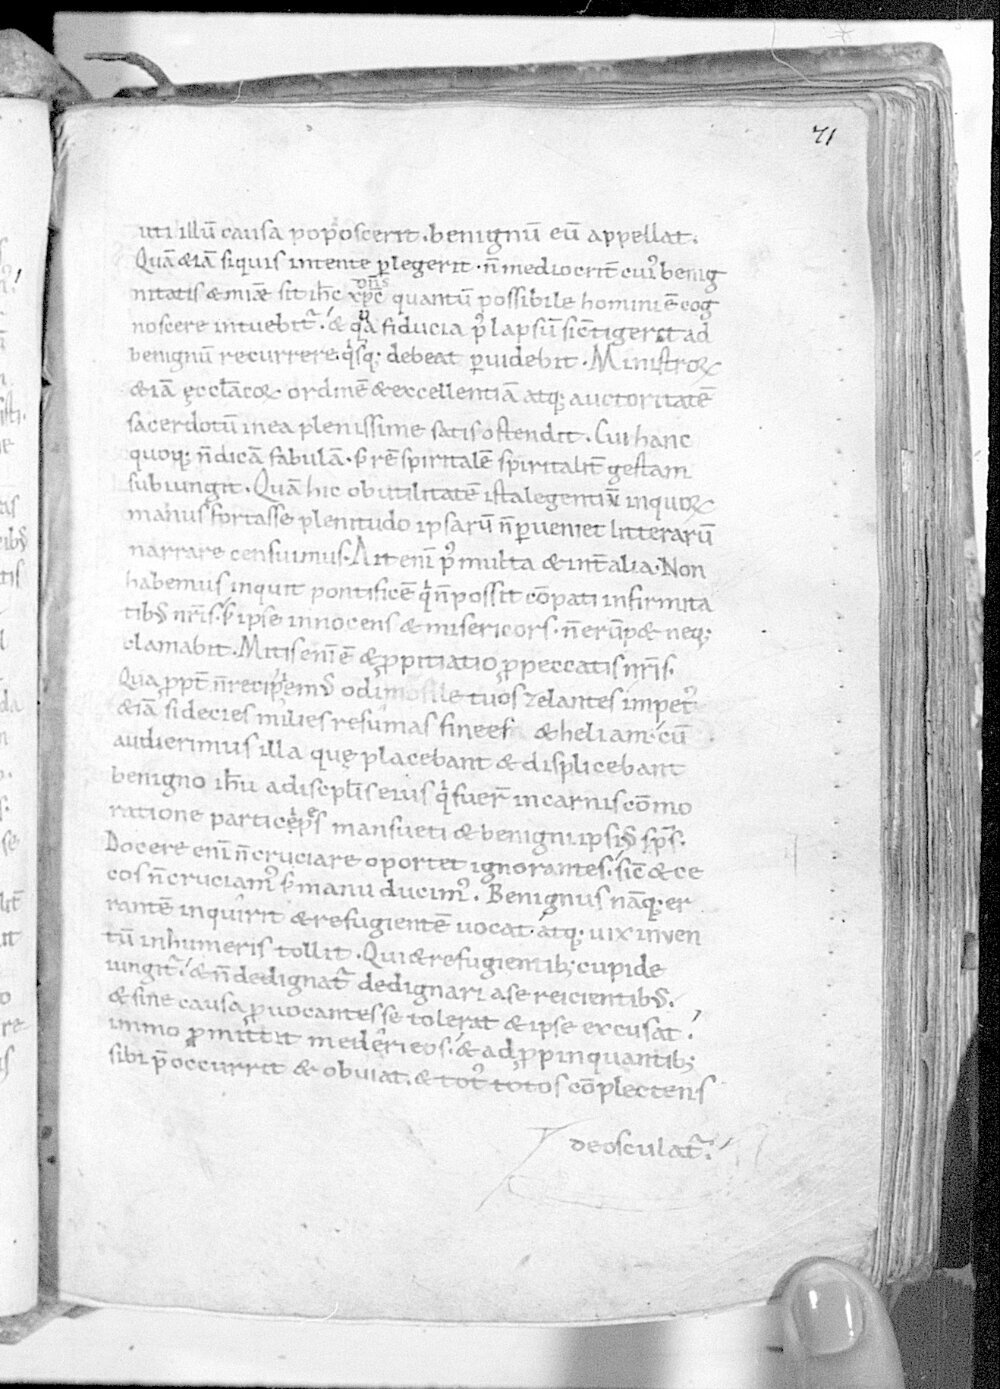 71
uti illũ causa poposcerit. benignũ eũ appellat.
Quã &iã siquis intente ꝑlegerit. ñ mediocrit̃ cui' benig
nitatis & miæ sit ih̃c xp̃c quantũ possibile homini ẽ cog
noscere intuebit̃. & qͣ fiducia p' lapsũ si c̃tigerit ad
benignũ recurrere q'sq; debeat ꝑuidebit. Ministroꝝ
&iã ęccl̃acoꝝ ordinẽ & excellentiã atq; auctoritatẽ
sacerdotũ in ea plenissime satis ostendit. Cui hanc
quoq; ñ dicã fabulã. s; rẽ spiritalẽ spiritalit̃ gestam
subiungit. Quã hic ob utilitatẽ ista legentiũ in quoꝝ
manus fortasse plenitudo ipsarũ ñ ꝑueniet litterarũ
narrare censuimus. Ait enĩ p' multa & int̃ alia. Non
habemus inquit pontificẽ q' ñ possit cõpati infirmita
tibꝰ nr̃is. s; ipse innocens & misericors. ñ erũp& neq;
clamabit. Mitis enĩ ẽ & ꝓpitiatio ꝓ peccatis nr̃is.
Qua ꝓpt̃ ñ recipiemꝰ tuos zelantes impet'
&iã si decies milies resumas finees & heliam. cũ
audierimus illa quę placebant & displicebant
benigno ih̃u a discipl̃is eius q' fuer̃ in carnis cõmo
ratione participes mansueti & benigni ipsiꝰ sp̃s.
Docere enĩ ñ cruciare oportet ignorantes. sic̃ & ce
cos ñ cruciam' s; manu ducim'. Benignus nãq; er
rantẽ inquirit & refugientẽ uocat. atq; uix inven
tũ in humeris tollit. Qui & refugientib; cupide
iungit̃. & ñ dedignat̃ dedignari a se reicientibꝰ.
& sine causa ꝓuocantes se tolerat & ipse excusat.
immo ꝓmittit mederi eos. & adꝓpinquantib;
sibi p̃occurrit & obuiat. & tot' totos cõplectens
deosculat̃.